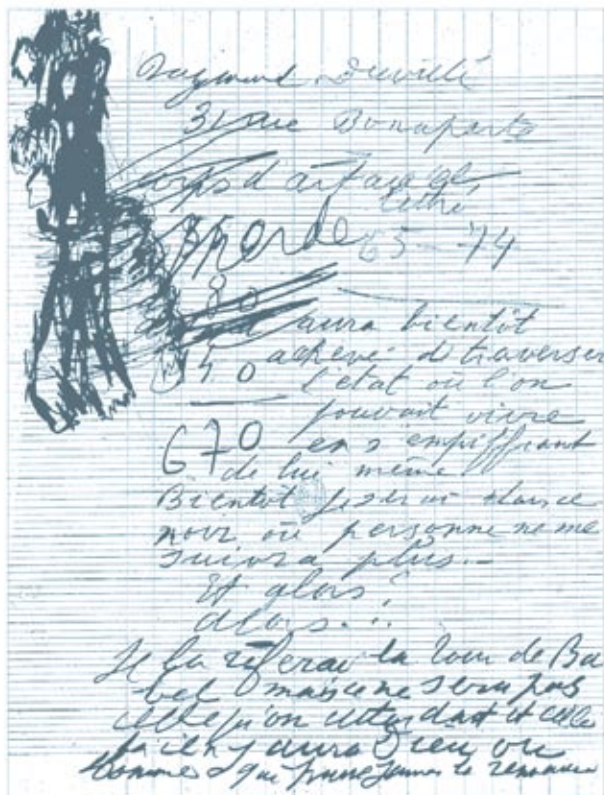 Raymond
31 rue Bonaparte
corps d'art
lettre
65-74
80
aura bientôt
50 achevé d traverser
l'état où l'on
pouvait vivre
670 en s'empiffrant
de lui même
Bientôt je serai dans ce
noir où personne ne me
suivra plus.-
Et alors?
alors...
Je la referai la Tour de Ba
-bel mais ce ne sera pas
celle qu'on attendait et celle
là il n'y aura Dieu ou
homme qui puisse jamais la renverser